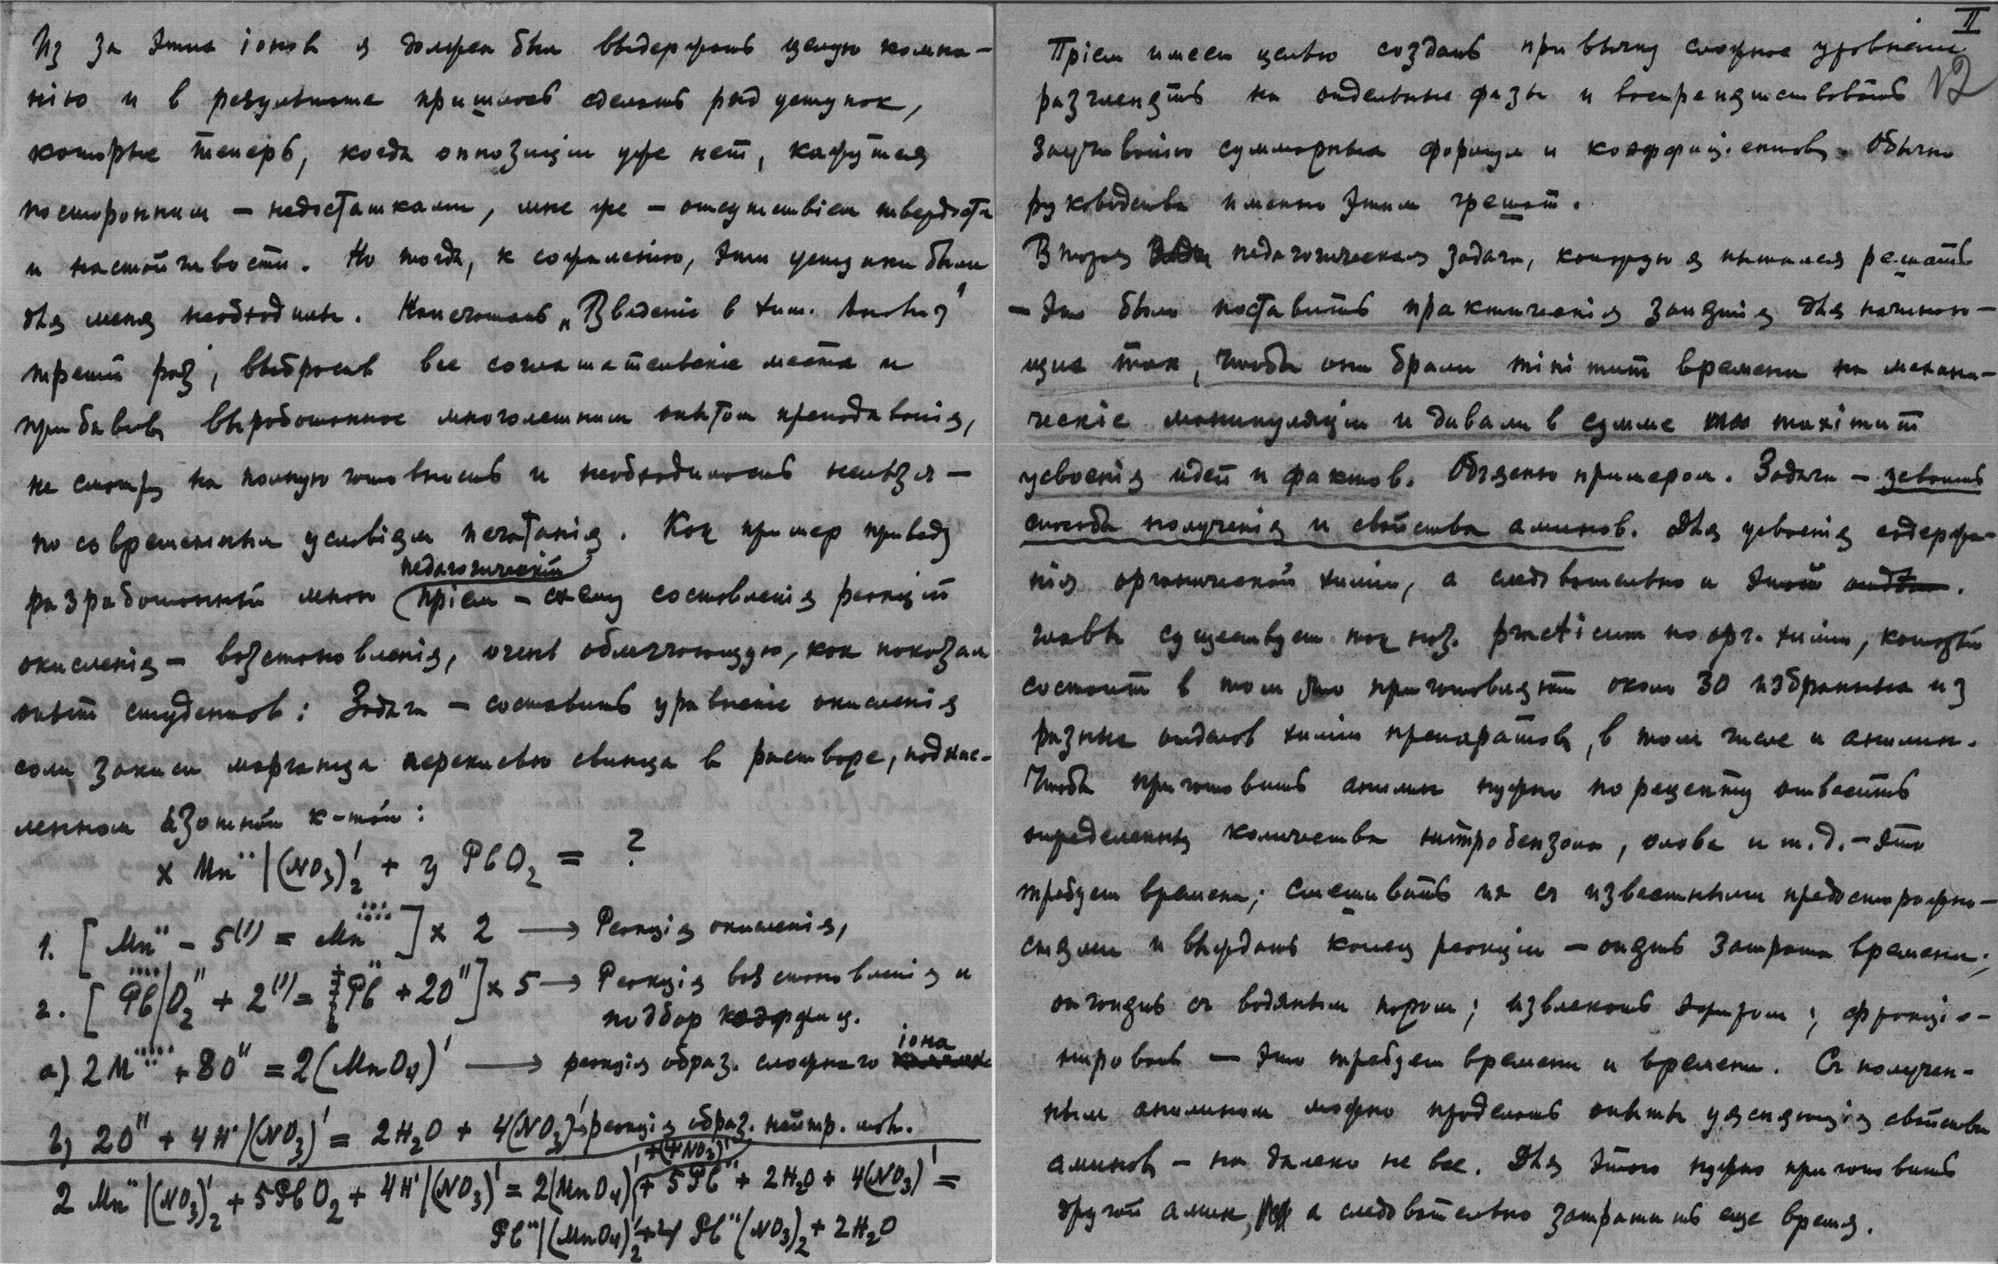 Из за этих iонов я должен был выдержать целую компа-
нiю и в результате пришлось сделать ряд уступок,
которые теперь, когда оппозицiи уже нет, кажутся
посторонним – недостатками, мне же – отсутствiем твердости
и настойчивости. Но тогда, к сожаленiю, эти уступки были
для меня необходимы. Напечатать „Введенiе в хим. Анализ"
третiй раз, выбросив все соглашательскiе места и
прибавив выработанное многолетним опытом преподаванiя,
не смотря на полную готовность и необходимость нельзя –
по современным условiям печатанiя. Как пример приведу
разработанный мною педагогическiй прiем – схему составленiя реакцiй
окисленiя – возстановленiя, очень облегчающую, как показал
опыт студентов: Задача – составить уравненiе окисленiя
соли закиси марганца перекисью свинца в растворе, подкис-
ленном азотной к-той:
x Mn¨|(NO₃)₂' + y PbO₂ = ?
1. [Mn¨ – 5(') = Mn·······] x 2 → Реакцiя окисленiя,
2. [Pb····|O₂" + 2(') = Pb¨ + 2O"] x 5 → Реакцiя возстановленiя и
подбор коэффиц.
а) 2M······· + 8O" = 2(MnO₄)' → реакцiя образ. сложнаго iона
б) 2O" + 4H·|(NO₃)' = 2H₂O + 4(NO₃)' → реакцiя образ. нейтр. мол.
+(4NO₃)'
2 Mn¨|(NO₃)₂' + 5PbO₂ + 4H·|(NO₃)' = 2(MnO₄)' + 5Pb¨ + 2H₂O + 4(NO₃)' =
Pb¨|(MnO₄)₂' + 4 Pb¨(NO₃)₂ + 2H₂O
II
12
Прiем имеет целью создать привычку сложное уравненiе
разчленять на отдельные фазы и воспрепятствовать
заучиванiю суммарных формул и коэффицiентов. Обычно
руководства именно этим грешат.
Вторая педагогическая задача, которую я пытался решать
– это было поставить практическiя занятiя для начинаю-
щих так, чтобы они брали minimum времени на механи-
ческiе манипуляцiи и давали в сумме maximum
усвоенiя идей и фактов. Объясню примером. Задача – усвоить
способы полученiя и свойства аминов. Для усвоенiя содержа-
нiя органической химiи, а следовательно и этой
главы существует так наз. practicum по орг. химiи, который
состоит в том что приготовляют около 30 избранных из
разных отделов химiи препаратов, в том числе и анилин.
Чтобы приготовить анилин нужно по рецепту отвесить
определенныя количества нитробензола, олова и т.д. – это
требует времени; смешивать их съ известными предосторожно-
стями и выждать конец реакцiи – опять затрата времени;
отогнать съ водяным паром; извлекать эфиром; фракцiо-
нировать – это требует времени и времени. Съ получен-
ным анилином можно проделать опыты уясняющiя свойства
аминов – но далеко не все. Для этого нужно приготовить
другой амин, а следовательно затратить еще время.